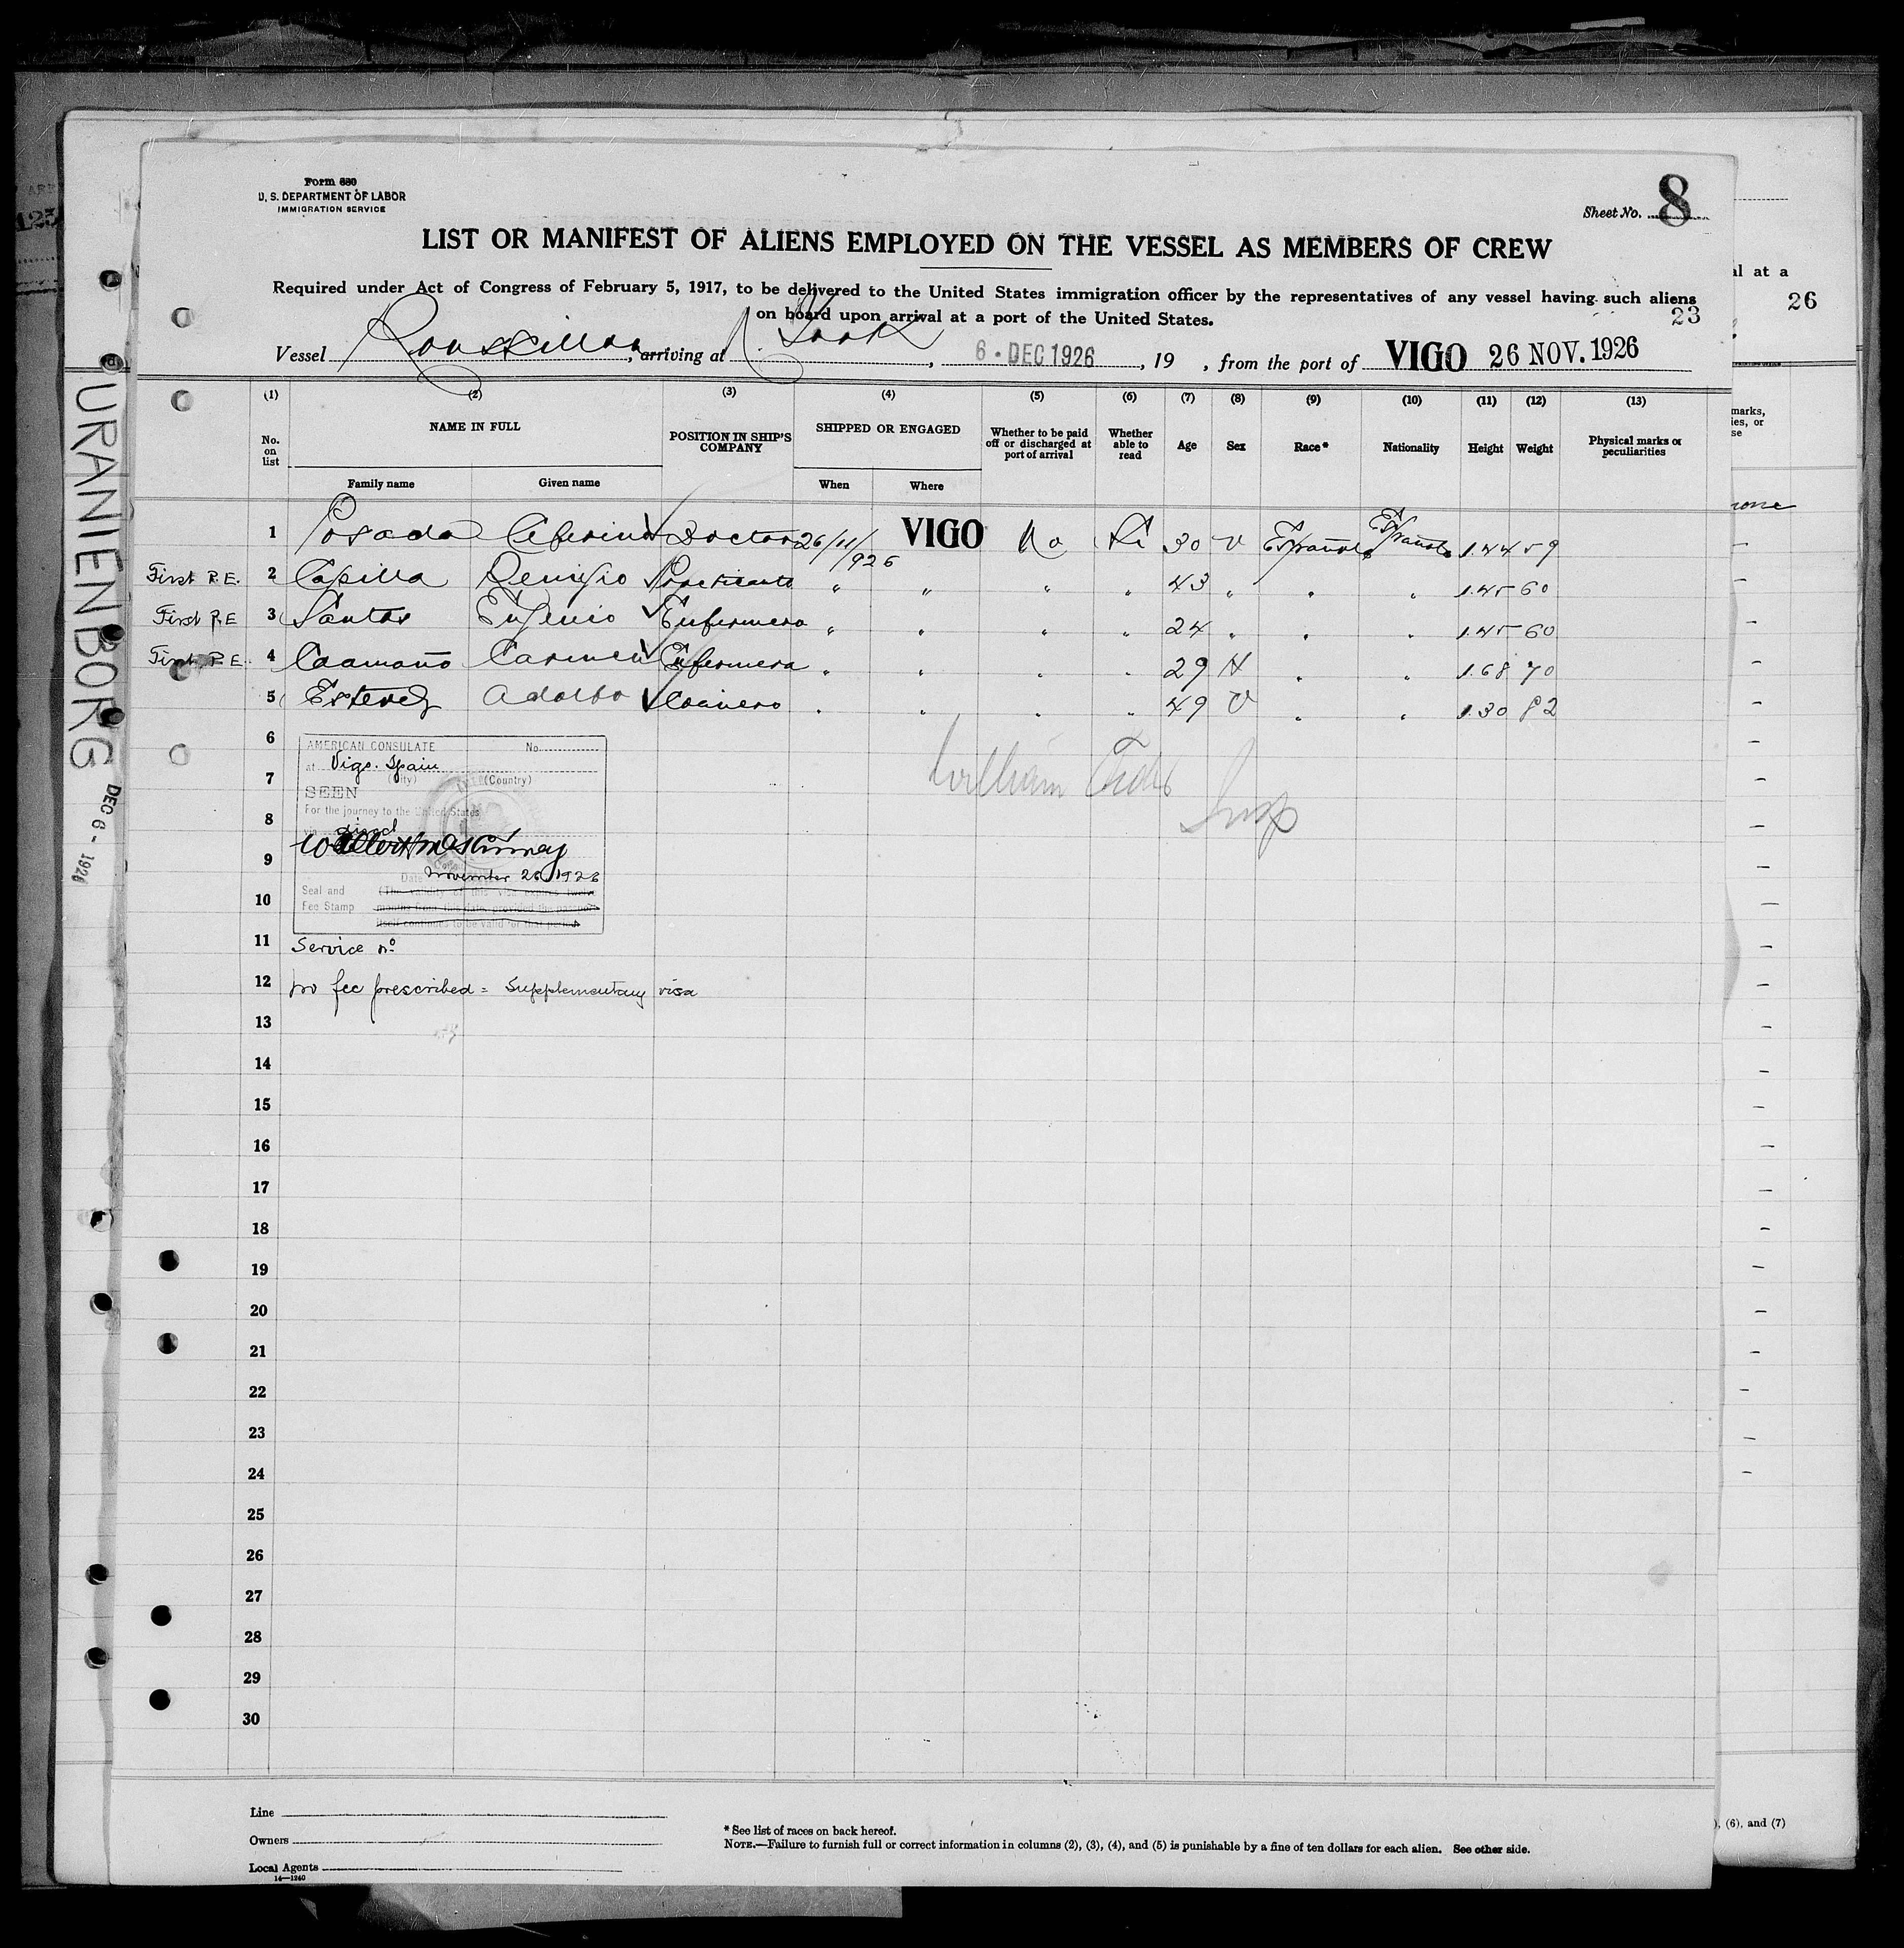 Form 680
U. S. DEPARTMENT OF LABOR
IMMIGRATION SERVICE
Sheet No. 8
LIST OR MANIFEST OF ALIENS EMPLOYED ON THE VESSEL AS MEMBERS OF CREW
Required under Act of Congress of February 5, 1917, to be delivered to the United States immigration officer by the representatives of any vessel having such aliens
on board upon arrival at a port of the United States.
23
Vessel Roussillon, arriving at N. York, 6 - DEC 1926, 19 , from the port of VIGO 26 NOV. 1926
(1) (2) (3) (4) (5) (6) (7) (8) (9) (10) (11) (12) (13)
No. on list NAME IN FULL POSITION IN SHIP'S COMPANY SHIPPED OR ENGAGED Whether to be paid off or discharged at port of arrival Whether able to read Age Sex Race* Nationality Height Weight Physical marks or peculiarities
Family name Given name When Where
1 Posada Ceferino Doctor 26/11/926 VIGO No Si 30 V Española Española 1.44 59
First P.E. 2 Capilla Remigio Practicante " " " " 43 " " " 1.45 60
First P.E 3 Santos Eugenio Enfermero " " " " 24 " " " 1.45 60
First P.E. 4 Caamaño Carmen Enfermera " " " " 29 H " " 1.68 70
5 Estevez Adolfo Cocinero " " " " 49 V " " 1.30 82
6
7
8
9
10
11
12
13
14
15
16
17
18
19
20
21
22
23
24
25
26
27
28
29
30
AMERICAN CONSULATE No.
at Vigo. Spain
(City) (Country)
SEEN
For the journey to the United States
via direct
Date November 26, 1926
Seal and (The validity of this visa expires twelve
Fee Stamp months from this date, provided the passport
itself continues to be valid for that period.
William
Insp
Service no
no fee prescribed = Supplementary visa
Line
Owners
Local Agents
14—1240
* See list of races on back hereof.
NOTE.—Failure to furnish full or correct information in columns (2), (3), (4), and (5) is punishable by a fine of ten dollars for each alien. See other side.
URANIENBORG DEC 6 - 1926
al at a
26
marks,
ies, or
se
none
), (6), and (7)